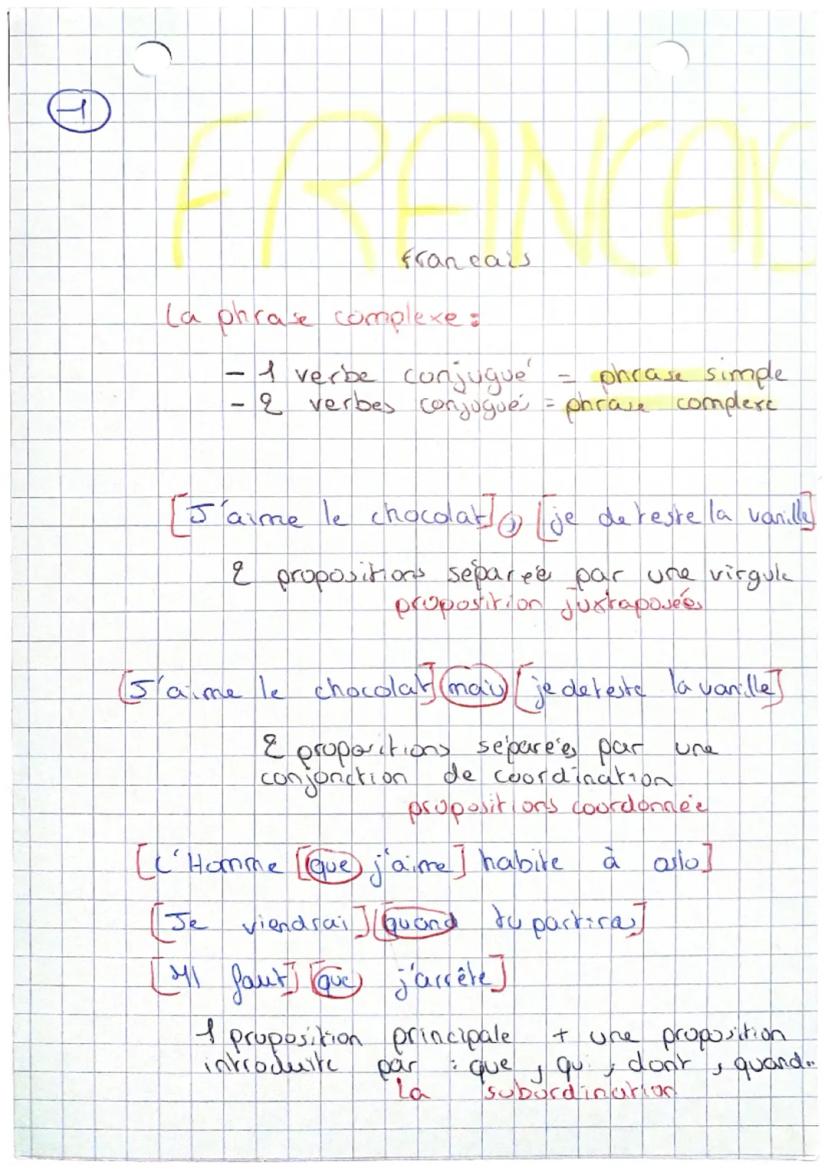 -1
FRANCAIS
francais
La phrase complexe :
- 1 verbe conjugué = phrase simple
- 2 verbes conjugué = phrase complexe
[J'aime le chocolat] , [je deteste la vanille]
2 propositions séparée par une virgule
proposition juxtaposées
[J'aime le chocolat] mais [je deteste la vanille]
2 propositions séparées par une
conjonction de coordination
propositions coordonnée
[L'Homme [que j'aime] habite à oslo]
[Je viendrai] [quand tu partiras]
[Il faut] [que j'arrête]
1 proposition principale + une proposition
introduite par : que, qui, dont, quand..
La subordination